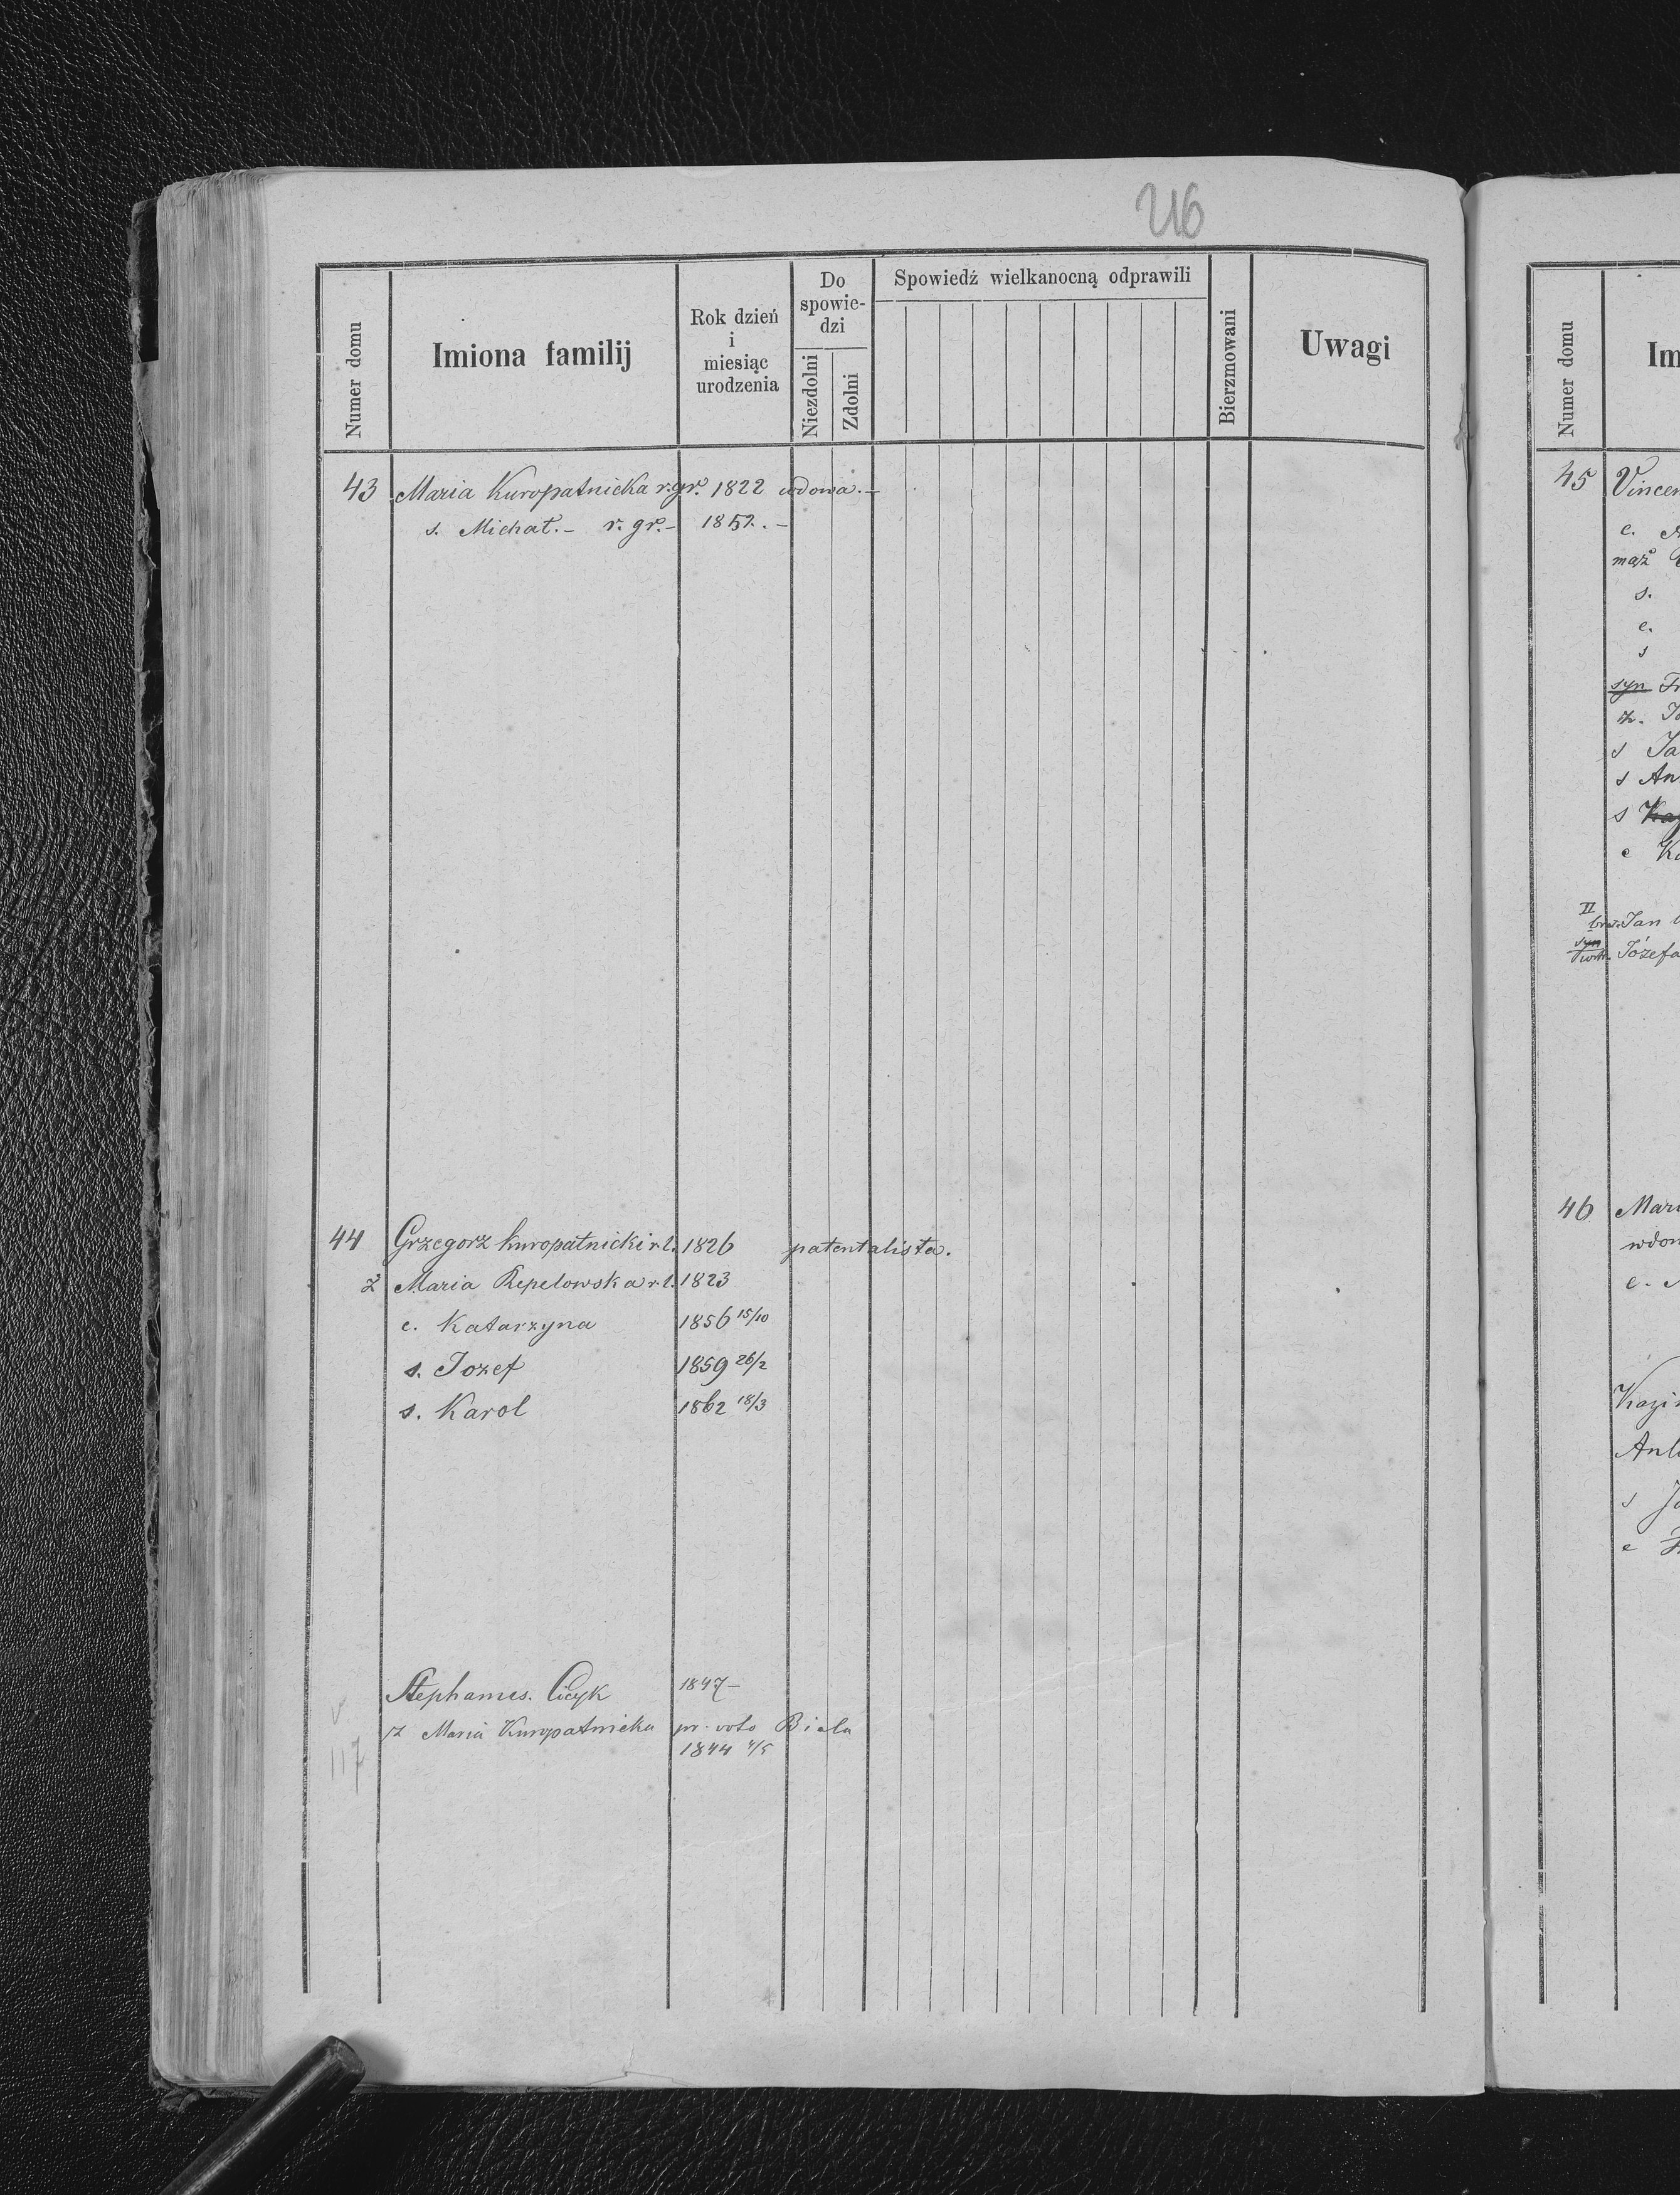 216
Numer domu
Imiona familij
Rok dzień
i
miesiąc
urodzenia
Do
spowie-
dzi
Niezdolni
Zdolni
Spowiedź wielkanocną odprawili
Bierzmowani
Uwagi
43 Maria Kuropatnicka r. gr. 1822 wdowa.-
s. Michał.- r. gr.- 1852.-
44 Grzegorz Kuropatnicki r. l. 1826 patentalista.
ż Maria Repelowska r. l. 1823
c. Katarzyna 1856 15/10
s. Jozef 1859 26/2
s. Karol 1862 18/3
Stephanus. Cicyk 1847-
ż Maria Kuropatnicka pr. voto Biela
1844 4/5
117
Numer domu
Im
45 Vincen
c.
mąż
s.
c.
s
syn Fr
ż. Jo
s Ja
s An
s Kaz
c Ka
II
Jan
syn
Józefa
46 Mari
wdow
c.
Kazi
Ant
s Jo
c